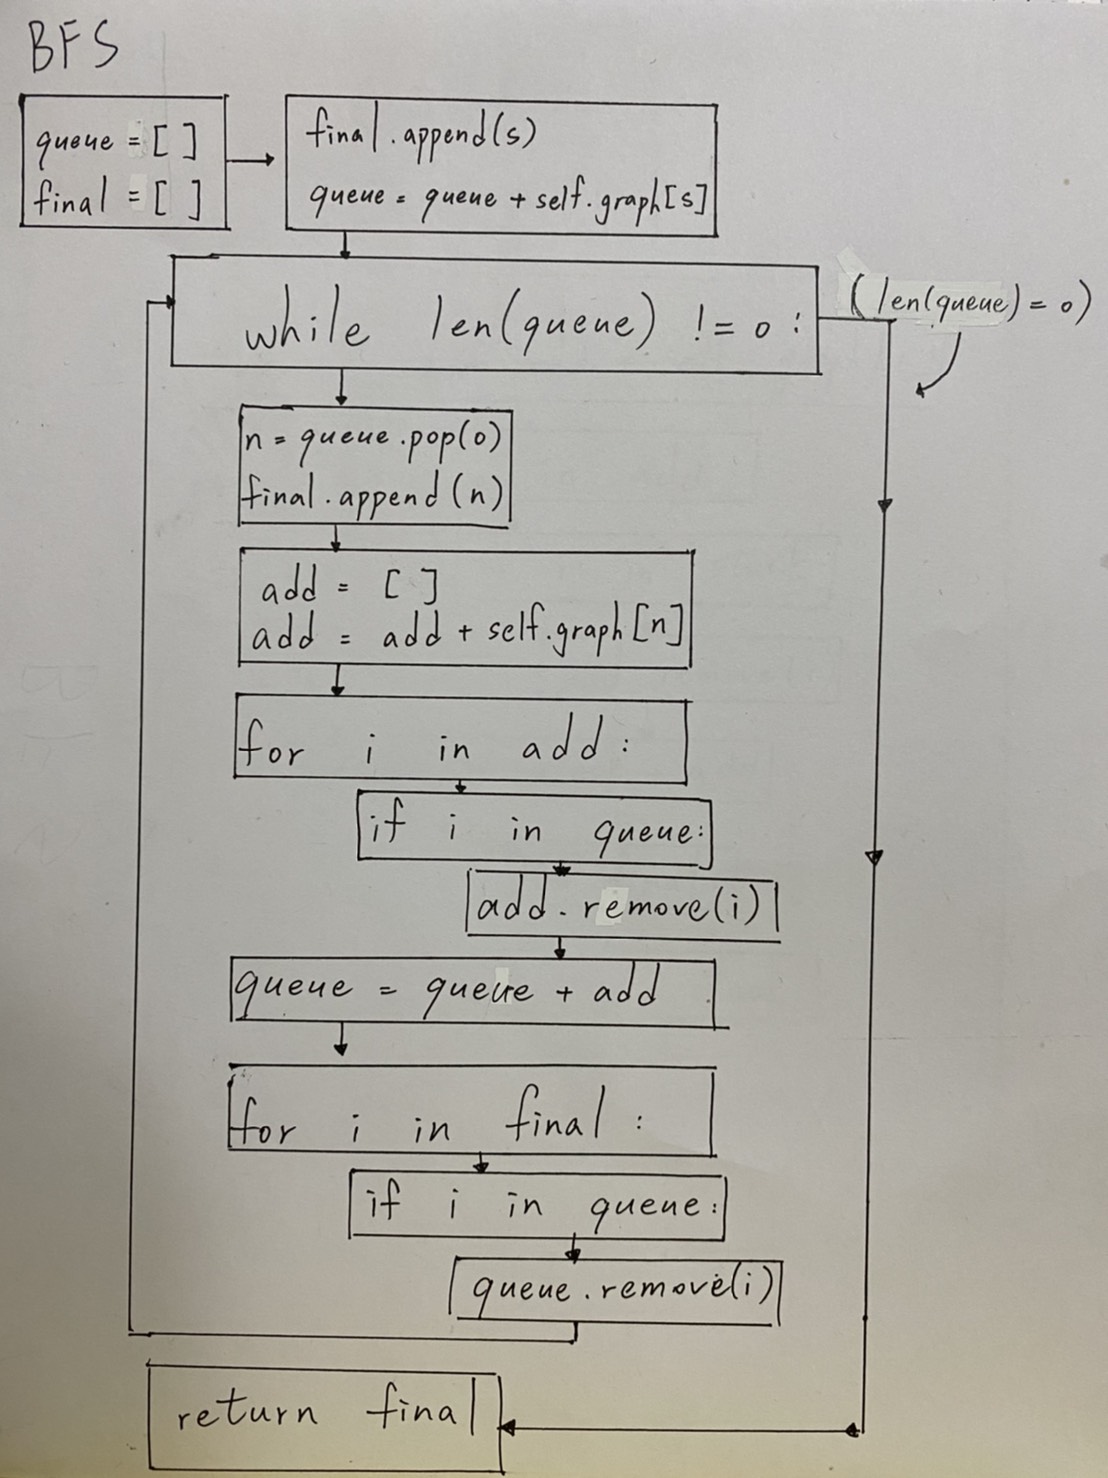 BFS
queue = [ ]
final = [ ]
final.append(s)
queue = queue + self.graph[s]
while len(queue) != 0 :
(len(queue) = 0)
n = queue.pop(0)
final.append(n)
add = [ ]
add = add + self.graph[n]
for i in add :
if i in queue:
add.remove(i)
queue = queue + add
for i in final :
if i in queue:
queue.remove(i)
return final